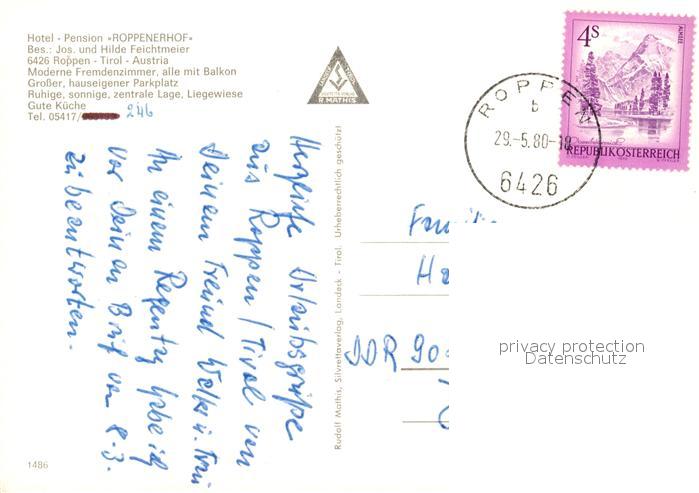 Hotel - Pension »ROPPENERHOF«
Bes.: Jos. und Hilde Feichtmeier
6426 Roppen - Tirol - Austria
Moderne Fremdenzimmer, alle mit Balkon
Großer, hauseigener Parkplatz
Ruhige, sonnige, zentrale Lage, Liegewiese
Gute Küche
Tel. 05417/ 246
R. MATHIS
4S
ALMSEE
REPUBLIK ÖSTERREICH
ROPPEN
b
29.-5.80-18
6426
Herzliche Urlaubsgrüße
aus Roppen / Tirol von
Deinem Freund Walter u. Frau
An einem Regentag habe ich
vor Deinen Brief vom 8.3.
zu beantworten.
Rudolf Mathis, Silvrettaverlag, Landeck - Tirol. Urheberrechtlich geschützt!
Ha
DDR 90
privacy protection
Datenschutz
1486